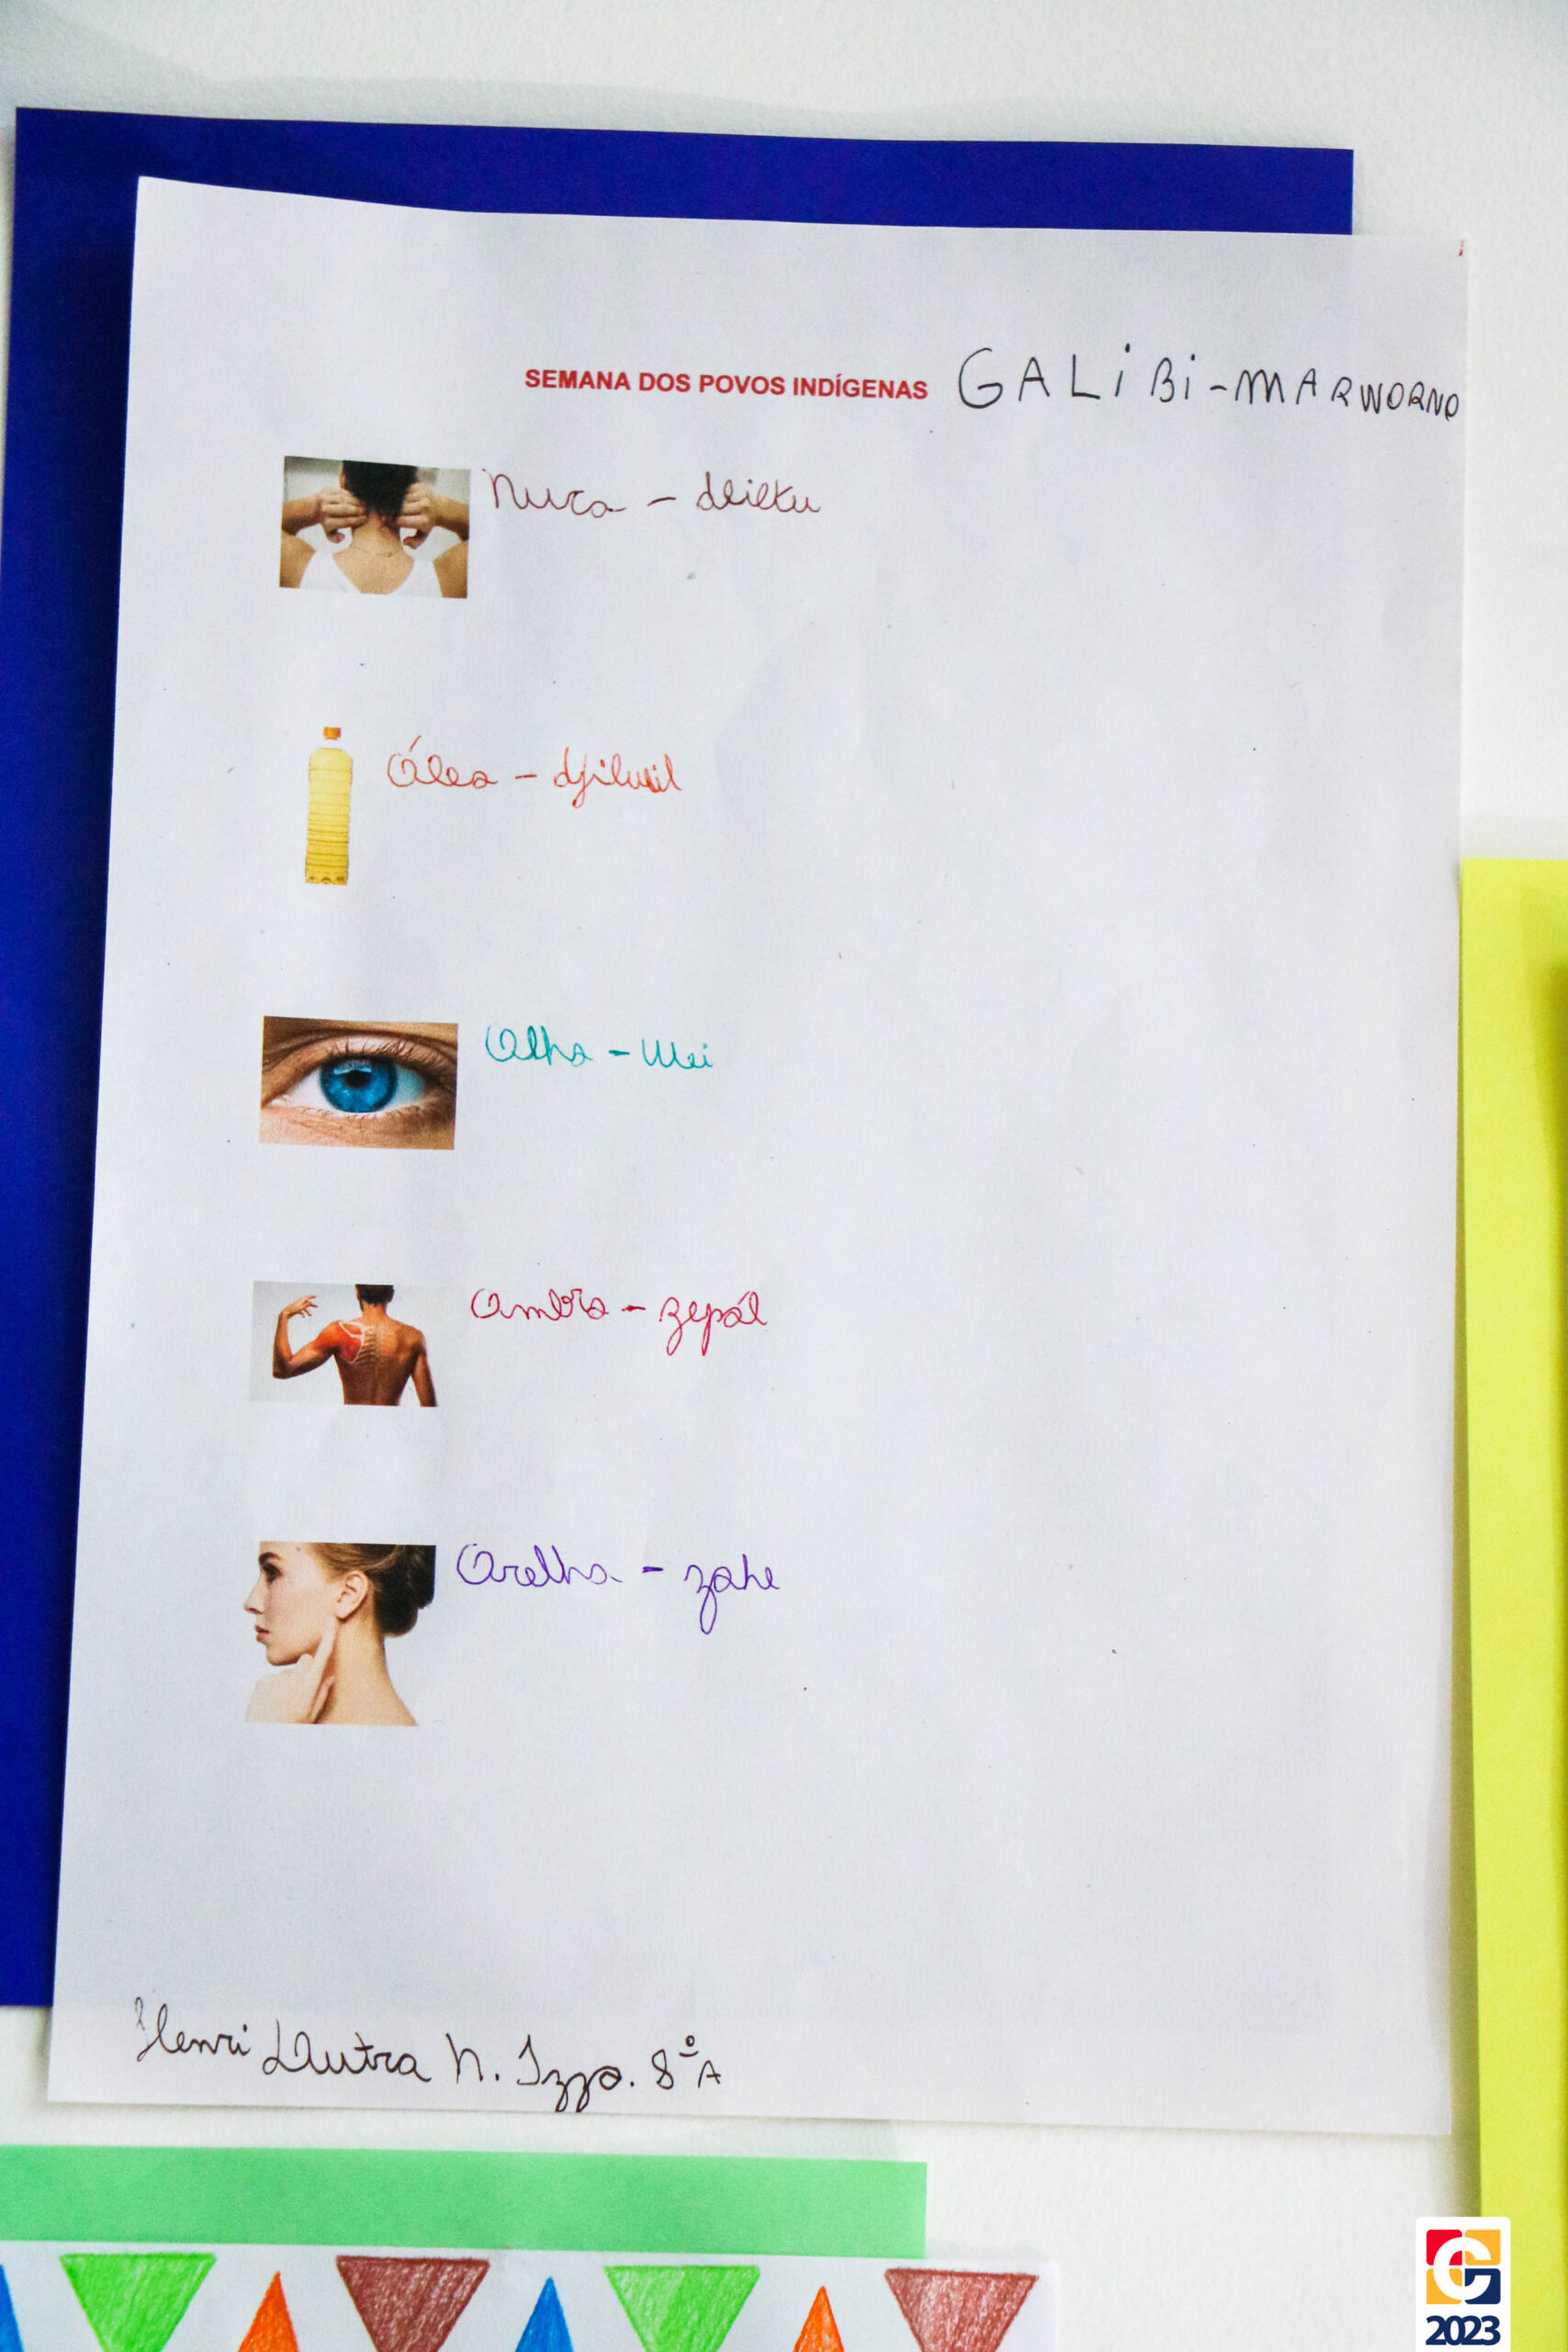 SEMANA DOS POVOS INDÍGENAS GALiBi-MARWORNO
Nuca -
Óleo -
Olho - Uei
Ombro - zepól
Orelha - zohe
Henri Dutra N. Izzo. 8ºA
2023